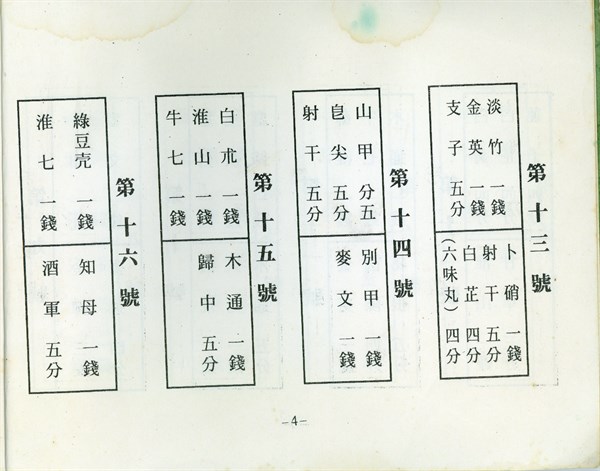 第十三號
淡竹一錢
金英一錢
支子五分
卜硝一錢
射干五分
白芷四分
(六味丸)四分
第十四號
山甲分五
皀尖五分
射干五分
別甲一錢
麥文一錢
第十五號
白朮一錢
淮山一錢
牛七一錢
木通一錢
歸中五分
第十六號
綠豆壳一錢
淮七一錢
知母一錢
酒軍五分
-4-